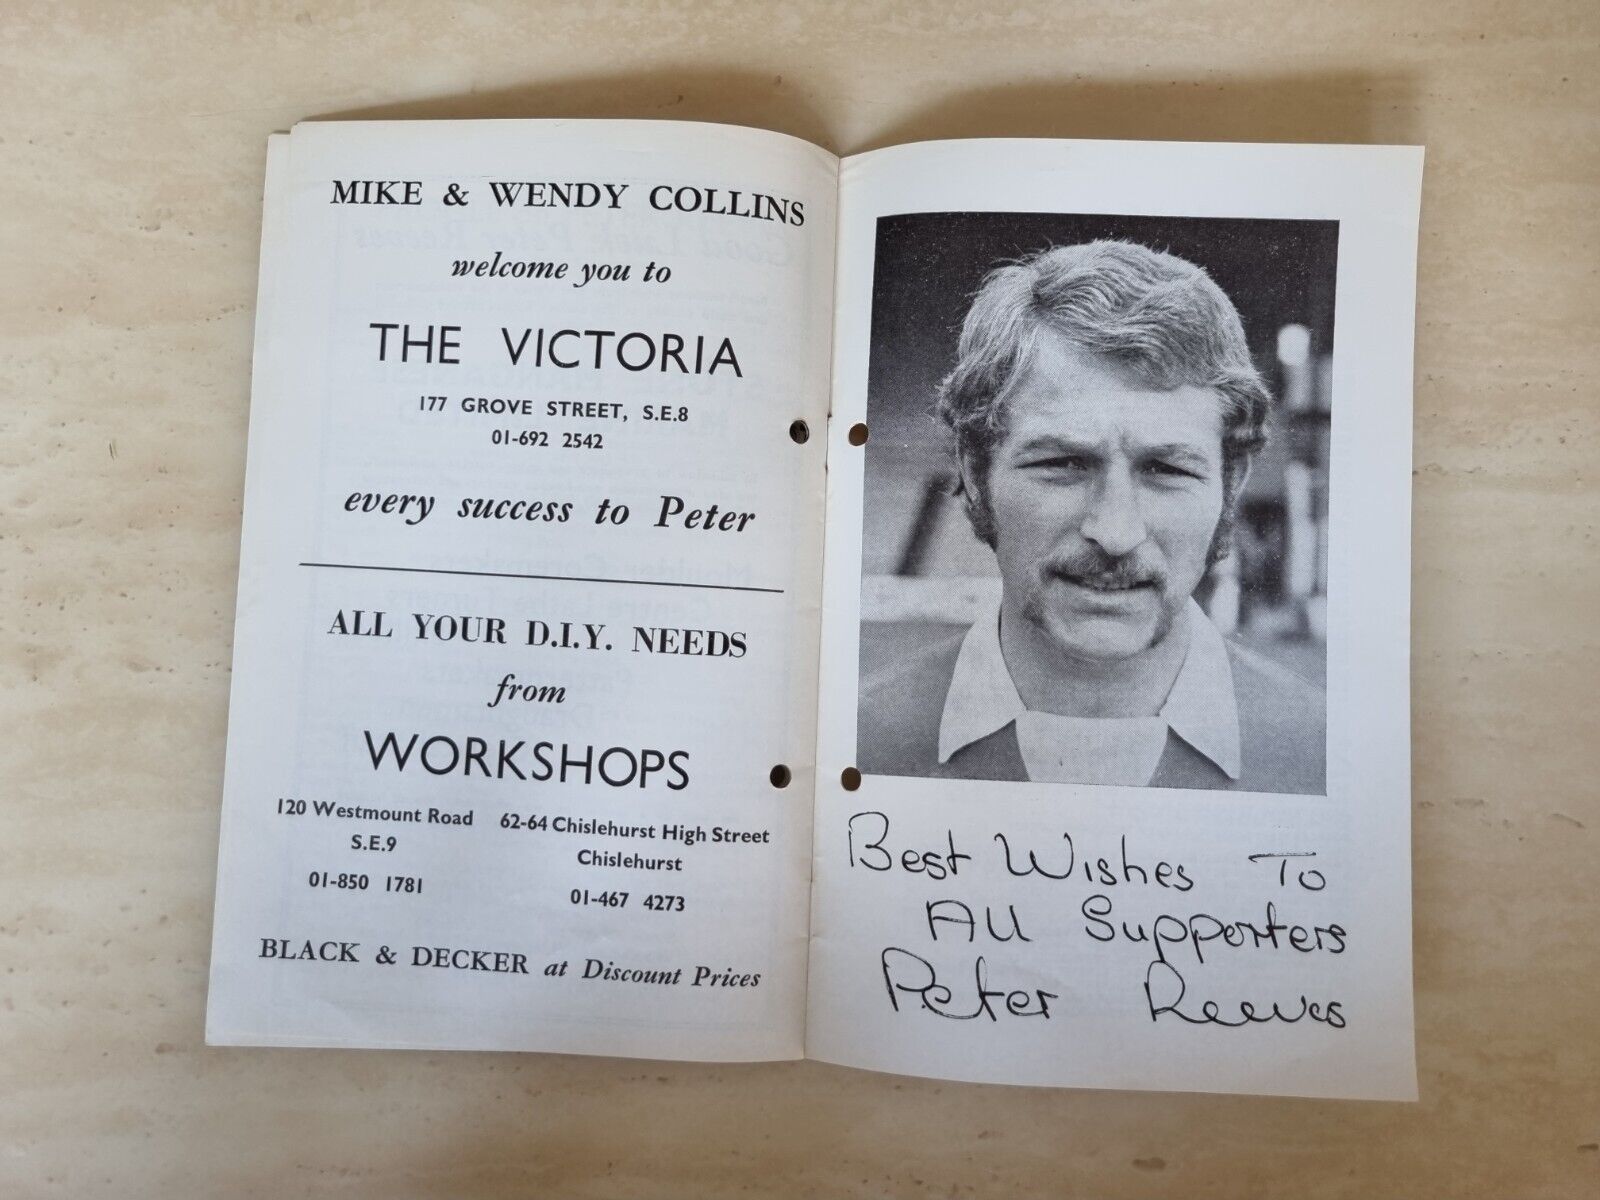 MIKE & WENDY COLLINS
welcome you to
THE VICTORIA
177 GROVE STREET, S.E.8
01-692 2542
every success to Peter
ALL YOUR D.I.Y. NEEDS
from
WORKSHOPS
120 Westmount Road
S.E.9
01-850 1781
62-64 Chislehurst High Street
Chislehurst
01-467 4273
BLACK & DECKER at Discount Prices
Best Wishes To
All Supporters
Peter Reeves